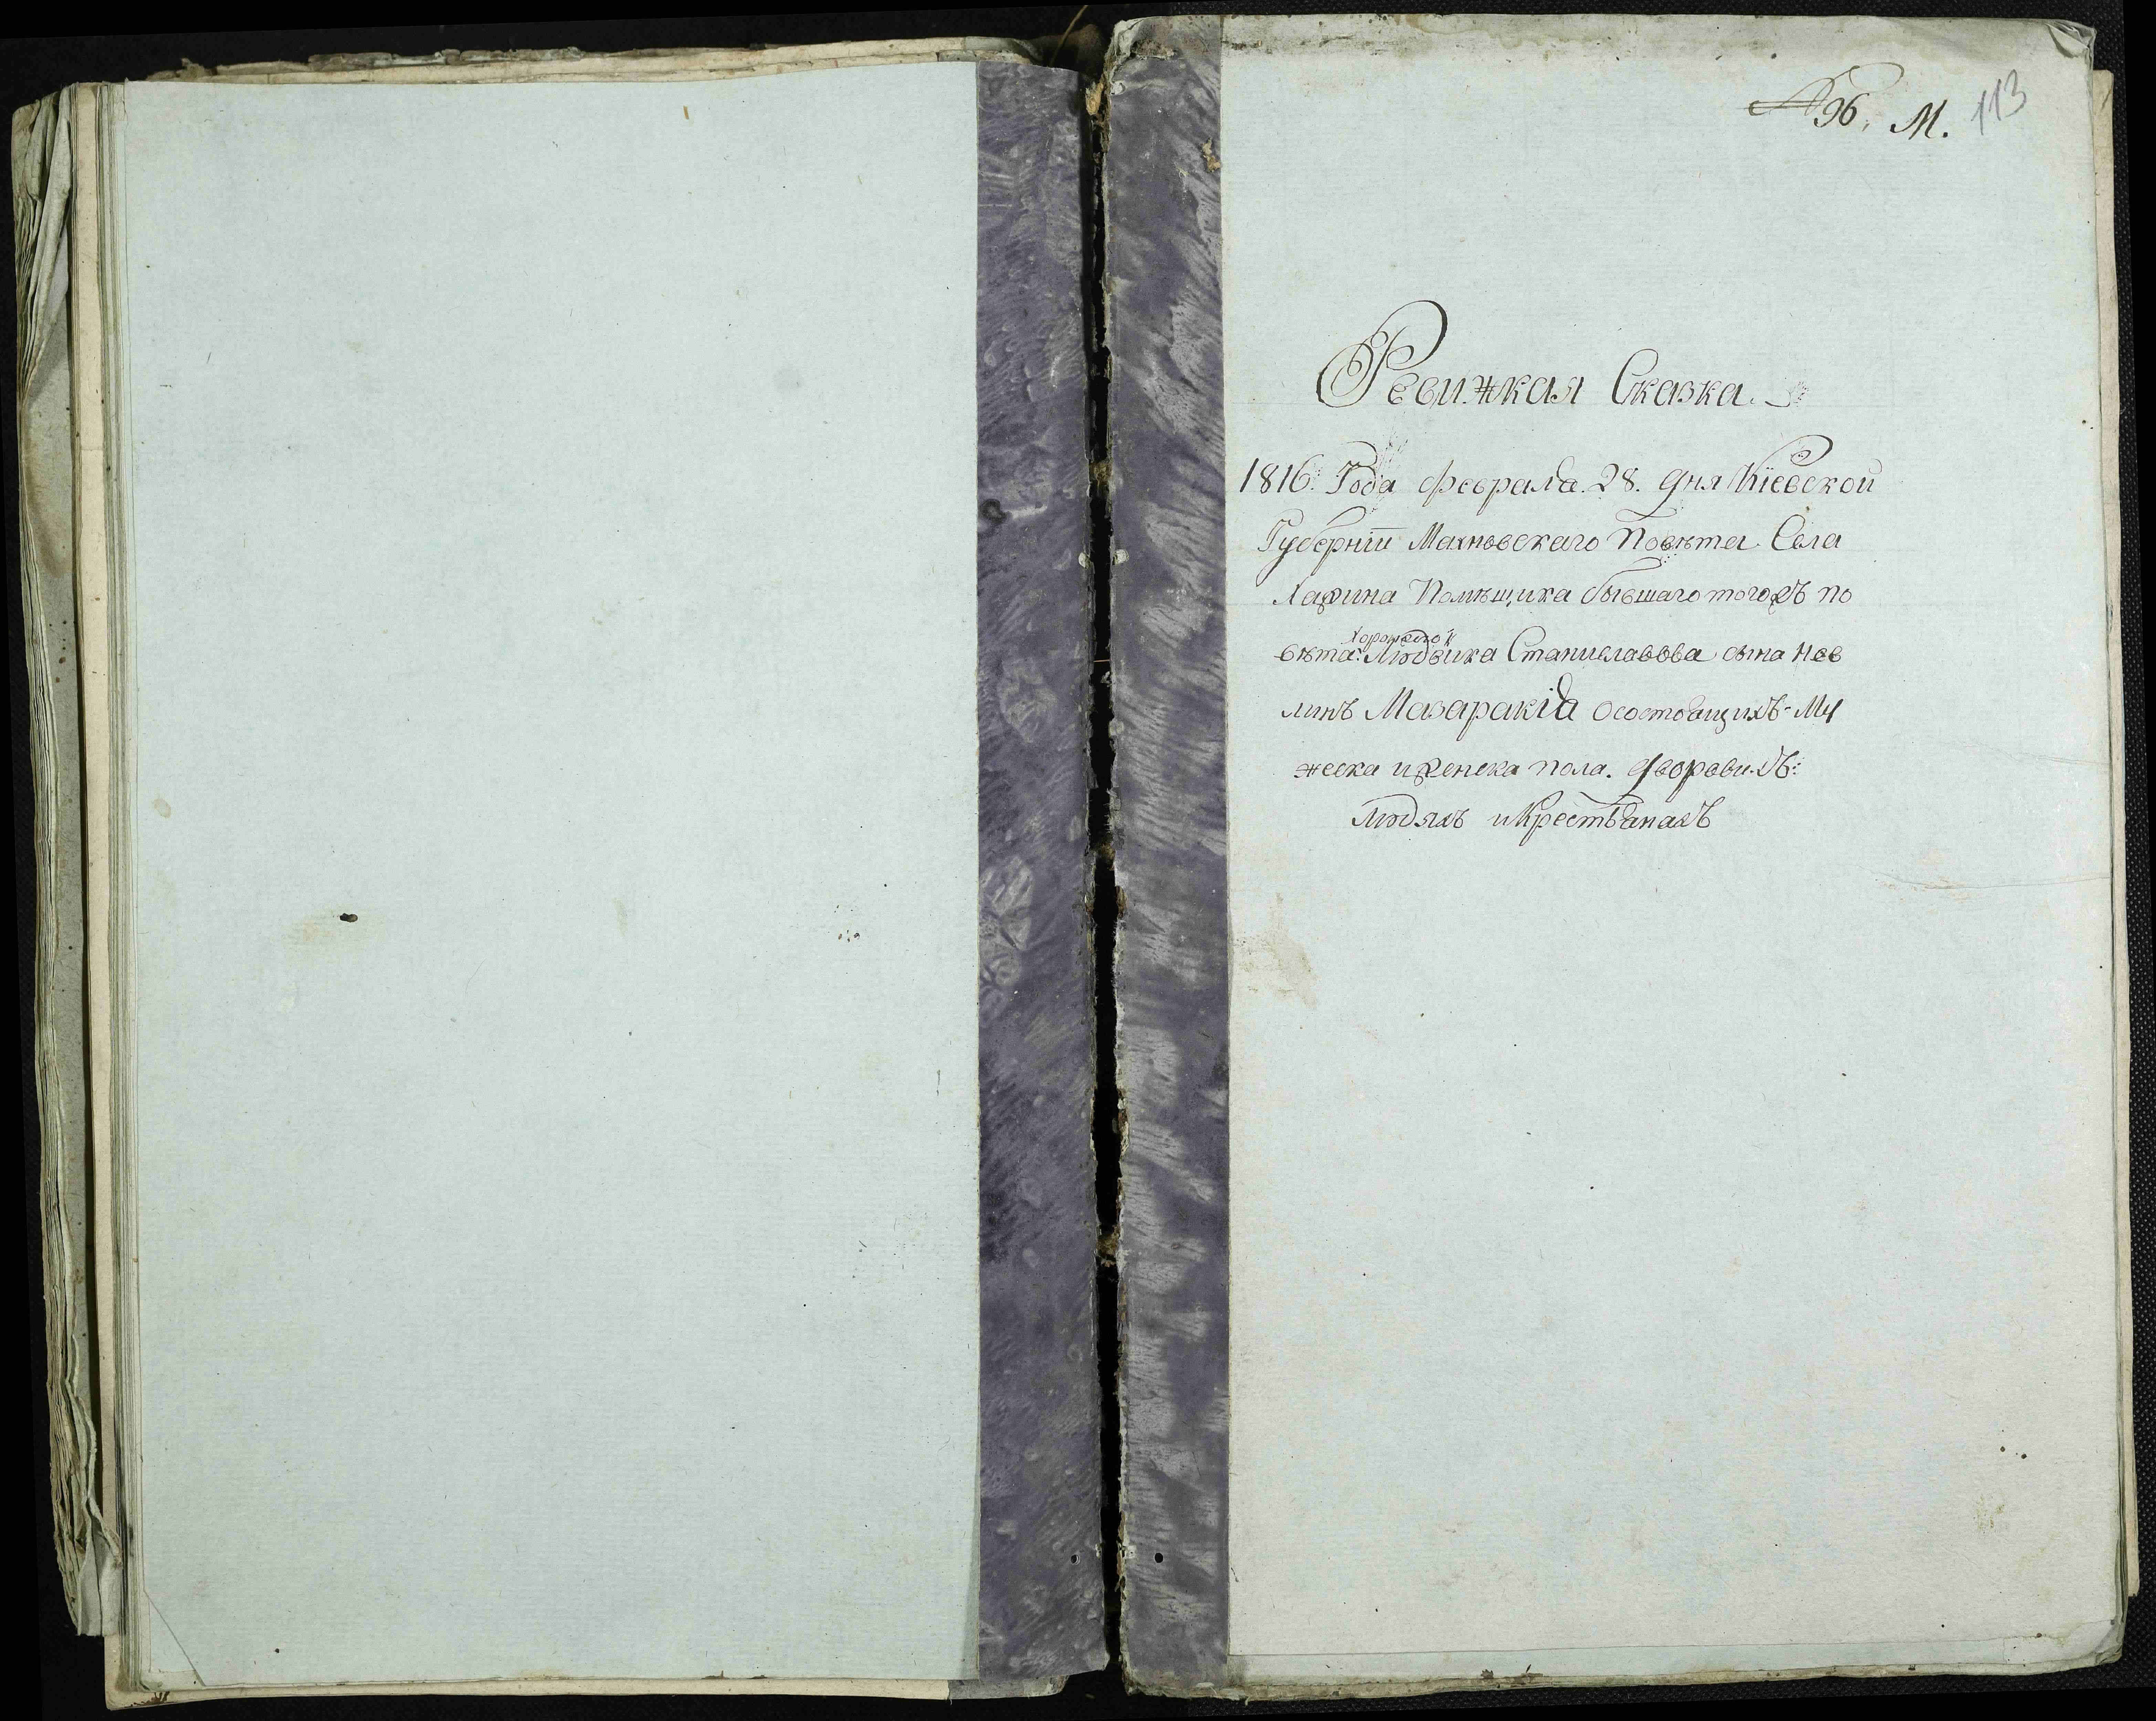 № 96. М. 113
Ревижкая Сказка.
1816: Года февраля. 28. дня Кіевской
Губерніи Махновскаго Повѣта Села
Помѣщика бывшаго тогожъ по
Хоронжого
вѣта: Людвика Станиславова сына
Мазаракія осостоящихъ Му
жеска иженска пола. дворови.хъ:
людяхъ икрестьянахъ